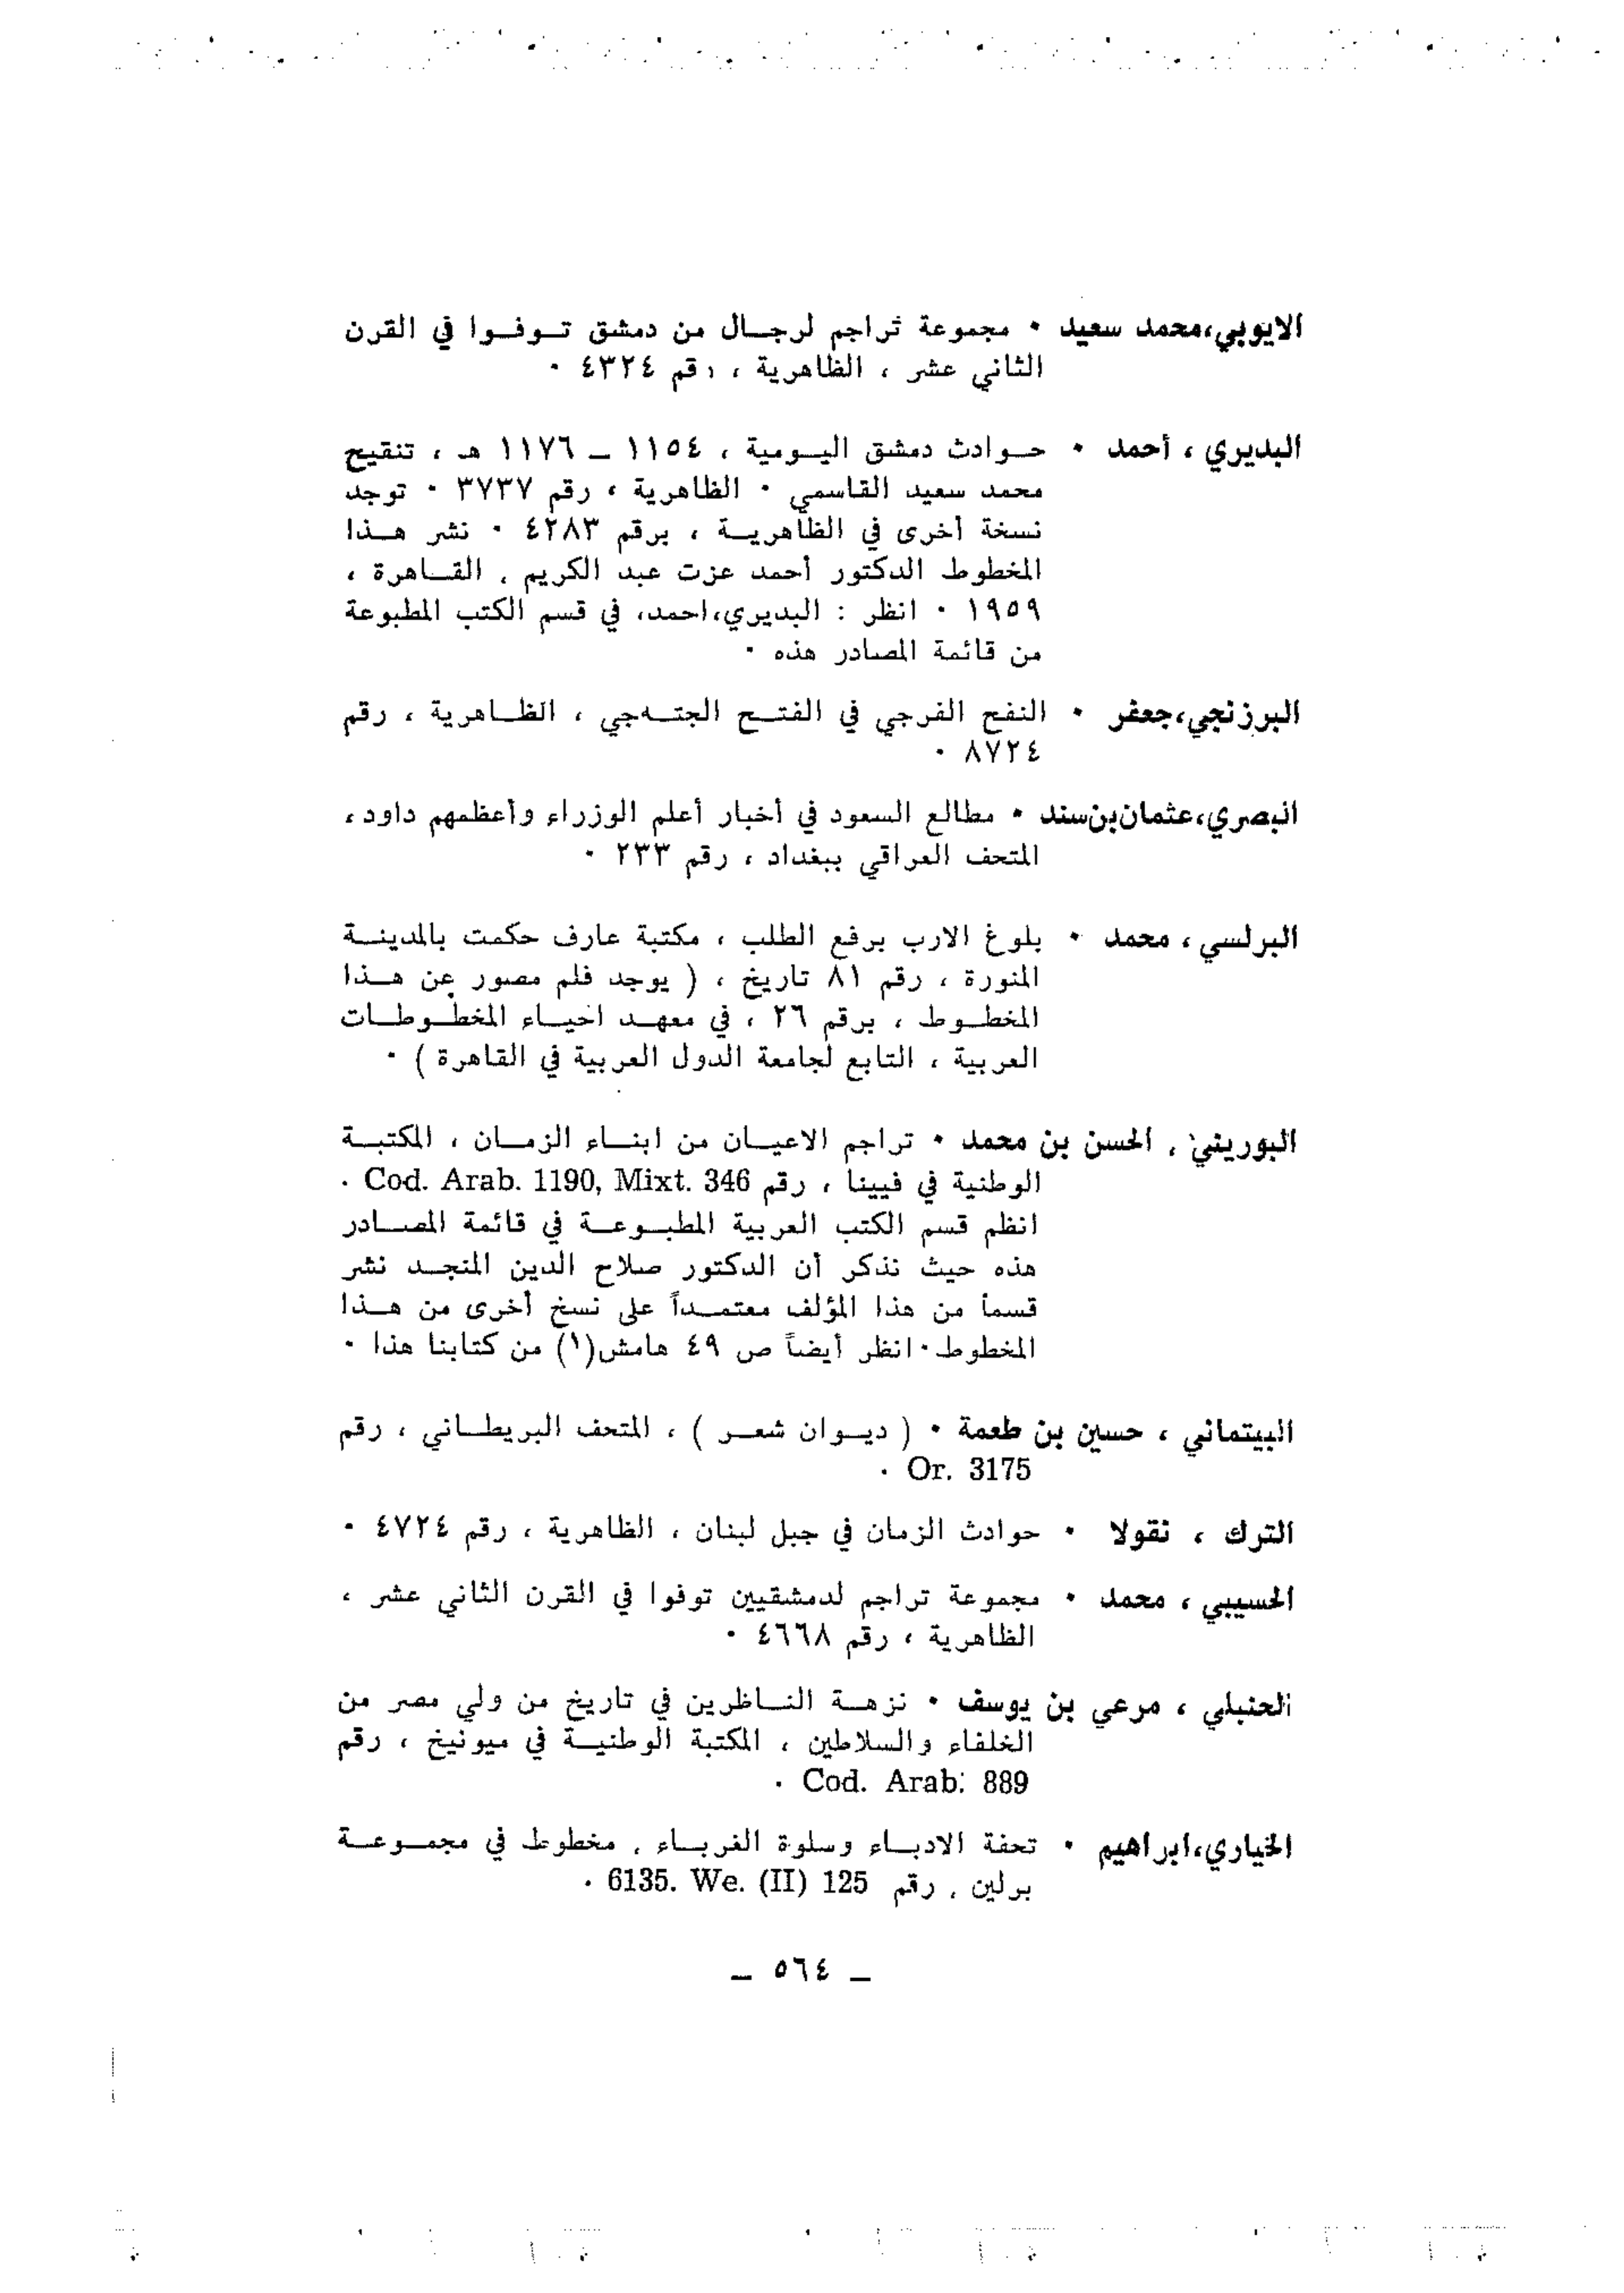 الايوبي،محمد سعيد ٠ مجموعة تراجم لرجال من دمشق توفوا في القرن
الثاني عشر ، الظاهرية ، رقم ٤٣٢٤ ٠
البديري ، أحمد ٠ حوادث دمشق اليومية ، ١١٥٤ – ١١٧٦ هـ ، تنقيح
محمد سعيد القاسمي ٠ الظاهرية ، رقم ٣٧٣٧ ٠ توجد
نسخة أخرى في الظاهرية ، برقم ٤٢٨٣ ٠ نشر هذا
المخطوط الدكتور أحمد عزت عبد الكريم ، القاهرة ،
١٩٥٩ ٠ انظر : البديري،احمد، في قسم الكتب المطبوعة
من قائمة المصادر هذه ٠
البرزنجي،جعفر ٠ النفح الفرجي في الفتح الجته‌جي ، الظاهرية ، رقم
٨٧٢٤ ٠
البصري،عثمان‌بن‌سند ٠ مطالع السعود في أخبار أعلم الوزراء وأعظمهم داود،
المتحف العراقي ببغداد ، رقم ٢٣٣ ٠
البرلسي ، محمد ٠ بلوغ الارب برفع الطلب ، مكتبة عارف حكمت بالمدينة
المنورة ، رقم ٨١ تاريخ ، ( يوجد فلم مصور عن هذا
المخطوط ، برقم ٢٦ ، في معهد احياء المخطوطات
العربية ، التابع لجامعة الدول العربية في القاهرة ) ٠
البوريني ، الحسن بن محمد ٠ تراجم الاعيان من ابناء الزمان ، المكتبة
الوطنية في فيينا ، رقم Cod. Arab. 1190, Mixt. 346 ٠
انظم قسم الكتب العربية المطبوعة في قائمة المصادر
هذه حيث نذكر أن الدكتور صلاح الدين المنجد نشر
قسماً من هذا المؤلف معتمداً على نسخ أخرى من هذا
المخطوط٠انظر أيضاً ص ٤٩ هامش(١) من كتابنا هذا ٠
البيتماني ، حسين بن طعمة ٠ ( ديوان شعر ) ، المتحف البريطاني ، رقم
Or. 3175 ٠
الترك ، نقولا ٠ حوادث الزمان في جبل لبنان ، الظاهرية ، رقم ٤٧٢٤ ٠
الحسيبي ، محمد ٠ مجموعة تراجم لدمشقيين توفوا في القرن الثاني عشر ،
الظاهرية ، رقم ٤٦٦٨ ٠
الحنبلي ، مرعي بن يوسف ٠ نزهة الناظرين في تاريخ من ولي مصر من
الخلفاء والسلاطين ، المكتبة الوطنية في ميونيخ ، رقم
Cod. Arab. 889 ٠
الخياري،ابراهيم ٠ تحفة الادباء وسلوة الغرباء ، مخطوط في مجموعة
برلين ، رقم 6135. We. (II) 125 ٠
– ٥٦٤ –